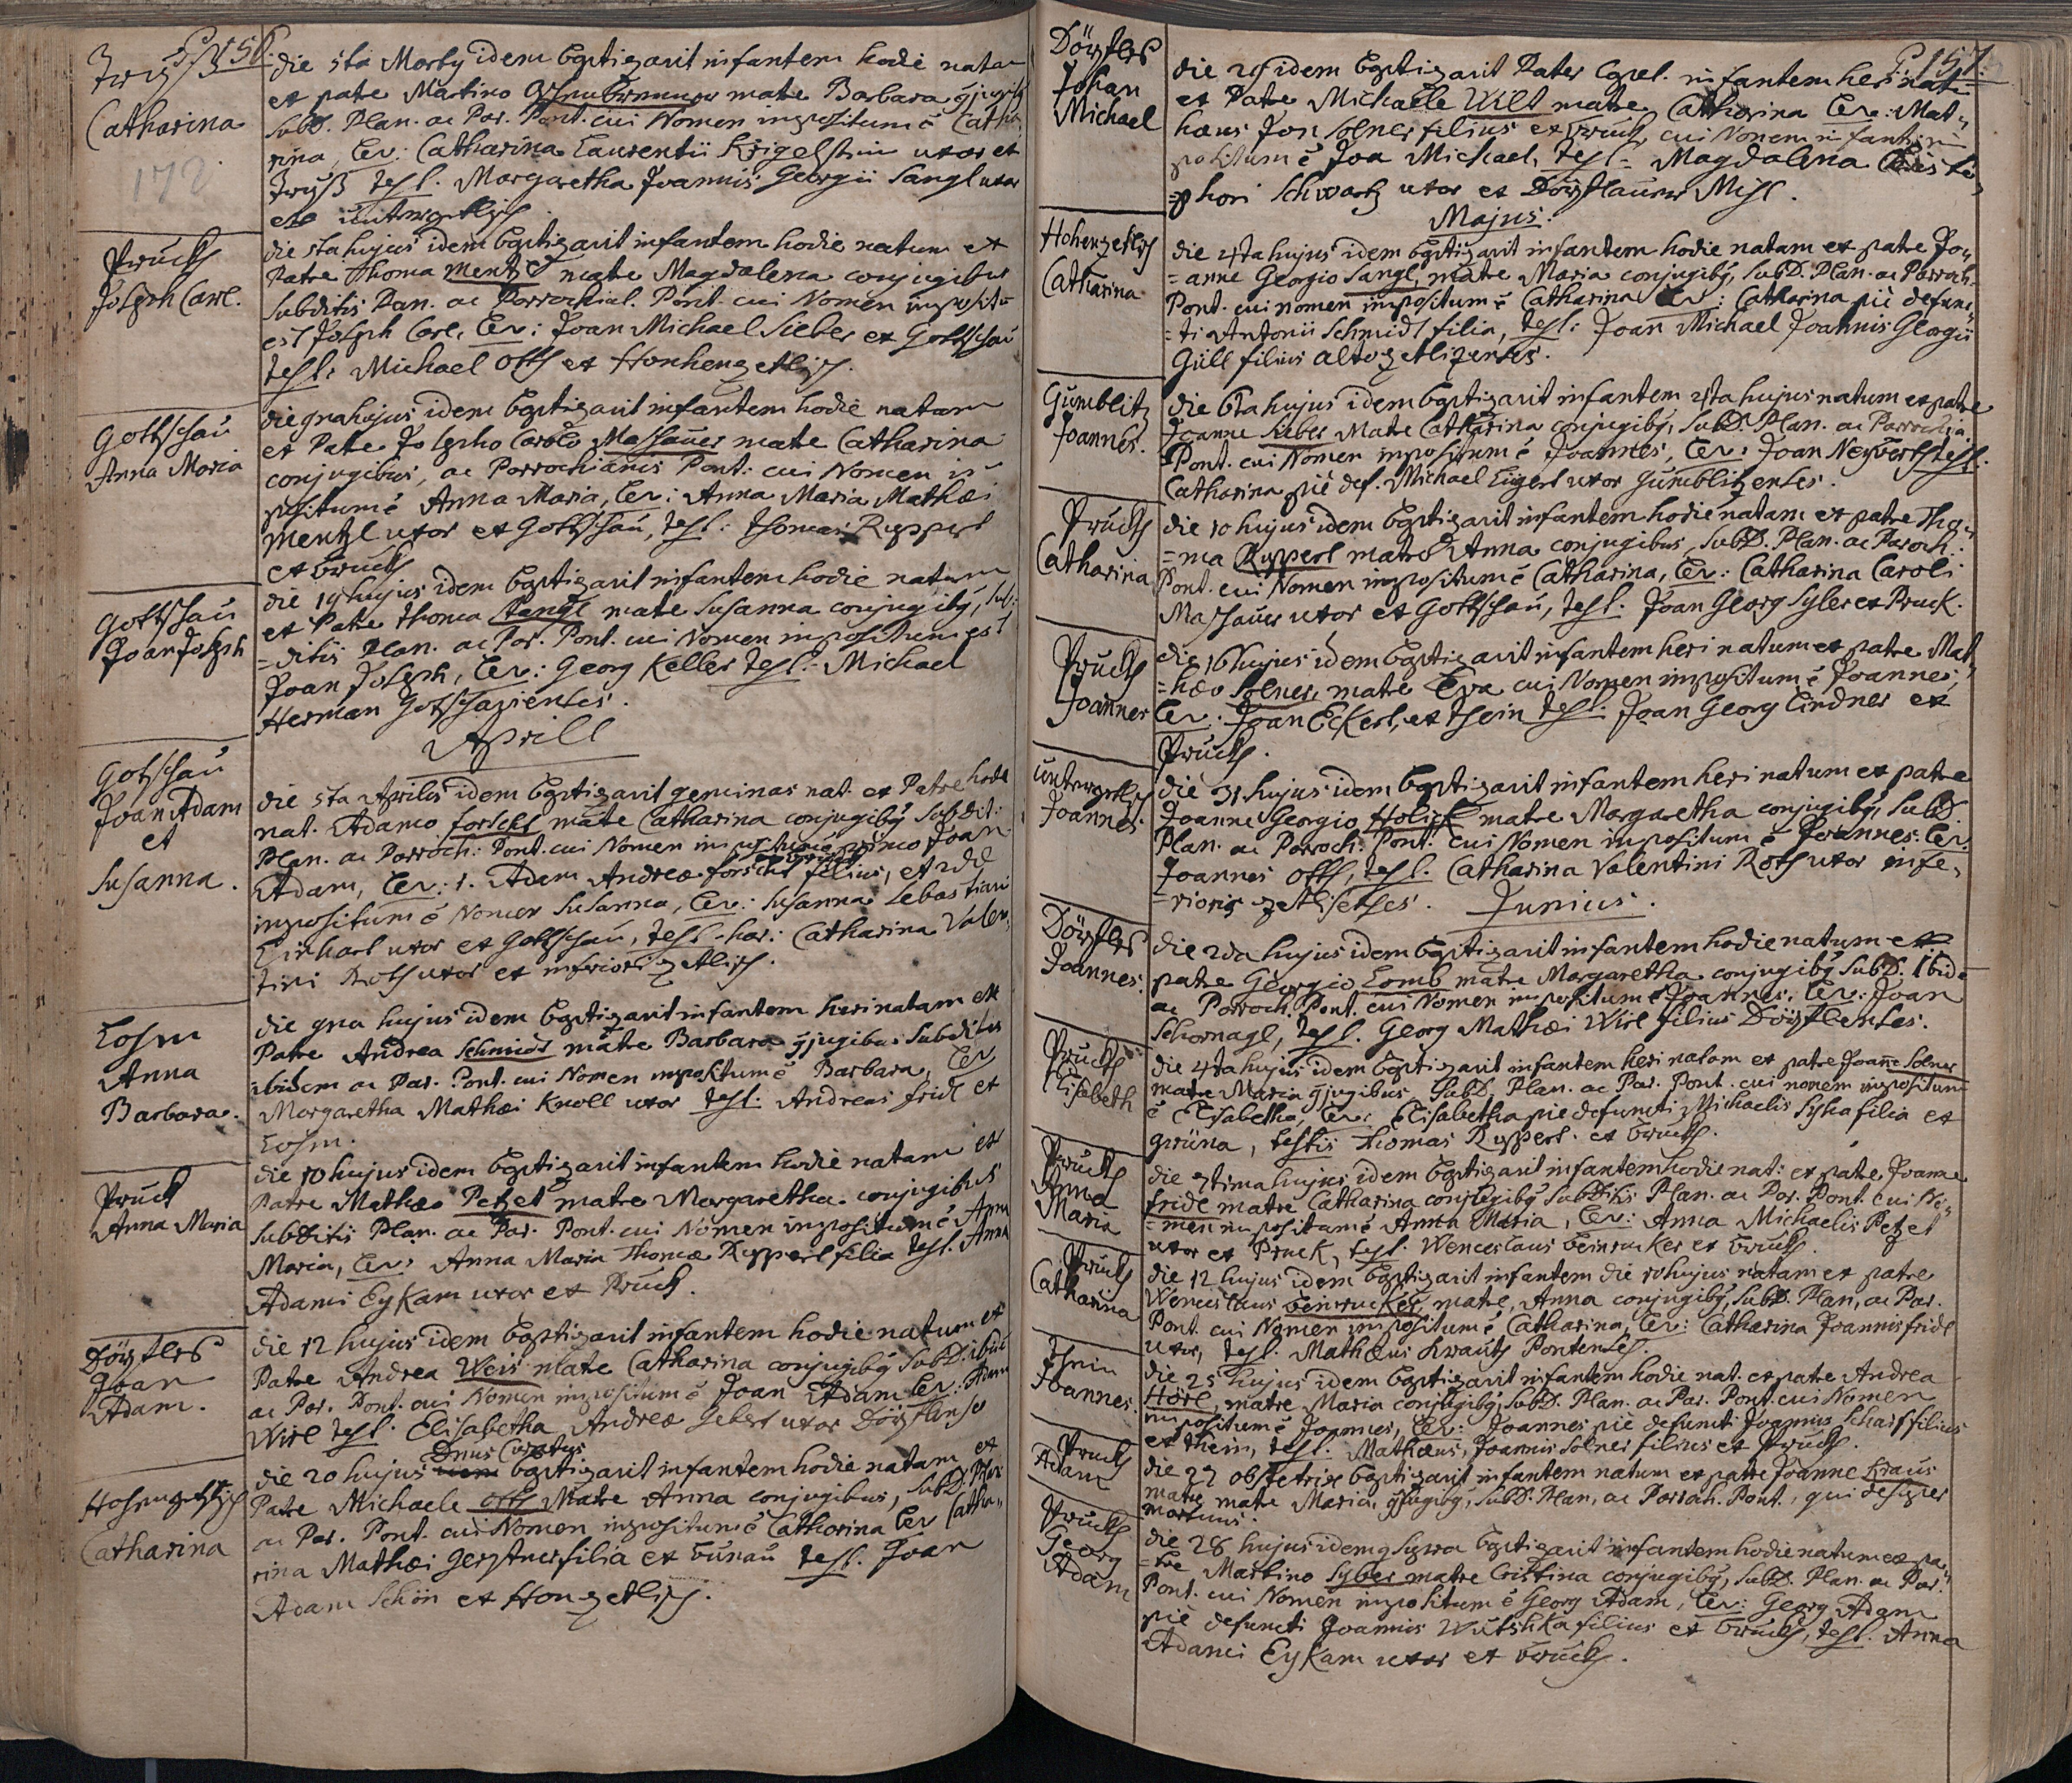 P. 156
Catharina
172
die 5ta Marty idem baptizavit infantem hodie natam
ex patre Martino matre Barbara
Subd. Plan. ac Par. Pont. cui Nomen impositum ē Catha
rina, Lev: Catharina Laurentii Krigelstein uxor ex
Test. Margaretha Joannis Georgii Sangl uxor
ex
Pruckh
Joseph Carl.
die hujus idem baptizavit infantem hodie natum ex
Patre Thoma Mentzl matre Magdalena conjugibus
subditis Plan. ac Parrochial. Pont. cui Nomen impositū
est Joseph Carl, Lev: Joan Michael Sieber ex Gottschau
test: Michael Otth ex Honhenzetlisch.
Gottschau
Anna Maria
die 9na hujus idem baptizavit infantem hodie natam
ex Patre Josepho Carolo Massauer matre Catharina
conjugibus, ac Parrochianis Pont: cui Nomen im
positum ē Anna Maria, Lev: Anna Maria Mathæi
Mentzl uxor ex Gottschau, test: Thomas Ruppert
ex Bruckh
Gottschau
Joan Joseph
die 19 hujus idem baptizavit infantem hodie natum
ex Patre Thoma matre Susanna conjugibꝫ, sub:
=ditis Plan. ac Par. Pont. cui Nomen impositum est
Joan Joseph, Lev: Georg Keller test: Michael
Herman Gotschazienses.
Aprill
Gotschau
Joan Adam
et
Susanna.
die 5ta Aprilis idem baptizavit geminas nat. ex Patre hodie
nat. Adamo forscht matre Catharina conjugibꝫ subdit:
Plan. ac Parroch: Pont. cui Nomen impositum ē primo Joan
Adam, Lev: 1. Adam Andreæ forscht filius, et 2dæ
impositum ē Nomen Susanna, Lev: Susanna Sebastiani
uxor ex Gottschau, test. har: Catharina Valen,
tini Roth uxor ex inferiori zetlisch.
Losin
Anna
Barbara.
die 9na hujus idem baptizavit infantem heri natam ex
Patre Andrea Schmidt matre Barbara conjugibus Subditis
ibidem ac Par. Pont. cui Nomen impositum ē Barbara, Lev
Margaretha Mathæi Knoll uxor test: Andreas fridl ex
Losin.
Pruck
Anna Maria
die 10 hujus idem baptizavit infantem hodie natam ex
Patre Mathæo Petzet matre Margaretha conjugibus
subditis Plan. ac Par. Pont. cui Nomen impositum ē Anna
Maria, Lev: Anna Maria Thomæ Ruppert filia test. Anna
Adami Eykam uxor ex Pruck.
Dörfles
Joan
Adam.
die 12 hujus idem baptizavit infantem hodie natum ex
Patre Andrea Weis matre Catharina conjugibꝫ Subd. ibid
ac Par. Pont. cui Nomen impositum ē Joan Adam Lev: Adam
Wirl test. Elisabetha Andreæ Gebert uxor Dörflens
Hohenzetlisch
Catharina
Dnus Curatus
die 20 hujus baptizavit infantem hodie natam ex
Patre Michaele Otth Matre Anna conjugibus, subd. Plan
ac Par. Pont. cui Nomen impositum ē Catharina Lev Catha=
rina Mathæi Gerstner filia ex Bunau test. Joan
Adam Schön ex Honzetlisch.
P. 157.
Dörfles
Johan
Michael
die 29 idem baptizavit Pater Capel. infantem heri natū
ex Patre Michaele Wilt matre Catharina Lev: Mat=
hæus Jon Solner filius ex Bruckh, cui Nomen infanti im
positum ē Joa Michael, Test = Magdalena Christo
=phori Schwartz uxor ex Dörflaurer Misl.
Majus.
Hohenzetlisch
Catharina
die 4ta hujus idem baptizavit infantem hodie natam ex patre Jo=
=anne Georgio Sangl, matre Maria conjugibꝫ, subd. Plan. ac Parroch.
Pont. cui nomen impositum ē Catharina Lev: Catharina piè defunc=
=ti Antonii Schmidt filia, test: Joan Michael Joannis Georgii
Güll filius altozetlizenses.
Gümblitz
Joannes.
die 6ta hujus idem baptizavit infantem 4ta hujus natum ex patre
Joanne Sieber Matre Catharina conjugibꝫ, subd. Plan. ac Parrochia.
Pont. cui Nomen impositum ē Joannes, Lev: Joan Neyberth test.
Catharina piè def. Michael Eigerl uxor Gümblitzenses.
Pruckh
Catharina
die 10 hujus idem baptizavit infantem hodie natam ex patre Tho=
=ma Ruppert matre Anna conjugibus, Subd. Plan. ac Paroch:
Pont. cui Nomen impositum ē Catharina, Lev: Catharina Caroli
Massauer uxor ex Gottschau, test. Joan Georg Syler ex Pruck.
Pruckh
Joannes
die 16 hujus idem baptizavit infantem heri natum ex patre Mat=
=hæo Solner, matre Eva cui Nomen impositum ē Joannes,
Lev: Joan Eckert, ex Thein test: Joan Georg Lindner ex
Pruckh.
Unterzetlisch
Joannes.
die 31 hujus idem baptizavit infantem heri natum ex patre
Joanne Georgio Holick matre Margaretha conjugibꝫ subd.
Plan. ac Parroch: Pont. cui Nomen impositum ē Joannes: Lev.
Joannes Otth, test. Catharina Valentini Roth uxor infe,
=rioris zetlisenses. Junius.
Dörfles
Joannes.
die 2da hujus idem baptizavit infantem hodie natum ex
patre Georgio Lomb matre Margaretha conjugibꝫ subd. ibid
ac Parroch. Pont. cui Nomen impositum ē Joannes, Lev: Joan
Schornagl, test. Georg Mathæi Wirl filius Dörflenses.
Pruckh
Elisabeth
die 4ta hujus idem baptizavit infantem heri natam ex patre Joanne Solner
matre Maria conjugibus Subd. Plan. ac Par. Pont. cui nomen impositum
ē Elisabetha, Lev: Elisabetha pie defuncti Michaelis filia ex
grüna, testis Thomas Ruppert ex Bruckh.
Pruckh
Anna
Maria
die 7tima hujus idem baptizavit infantem hodie nat: ex patre Joanne
fridl matre Catharina conjugibꝫ subditis Plan. ac Par. Pont. cui No=
=men impositum ē Anna Maria, Lev: Anna Michaelis Petzet
uxor ex Pruck, test. Wenceslaus Beinrucker ex Bruckh.
Pruckh
Catharina
die 12 hujus idem baptizavit infantem die 10 hujus natam ex patre
Wenceslaus Beinrucker, matre, Anna conjugibꝫ, subd. Plan, ac Par.
Pont. cui Nomen impositum ē Catharina, Lev: Catharina Joannis fridl
uxor, test. Mathæus Krauth Pontenses.
Thein
Joannes.
die 25 hujus idem baptizavit infantem hodie nat. ex patre Andrea
Hörl, matre Maria conjugibꝫ, subd. Plan. ac Par. Pont. cui Nomen
impositum ē Joannes, Lev: Joannes piè defuncti Joannis Scharf filius
ex thein, test. Mathæus, Joannis Solner filius ex Pruckh.
Pruckh
Adam
die 27 obstetrix baptizavit infantem natum ex patre Joanne Kraus
matre matre Maria, conjugibꝫ, subd. Plan, ac Parroch. Pont., qui
mortuus.
Pruckh
Georg
Adam
die 28 hujus idem q supra baptizavit infantem hodie natum ex pa=
=tre Martino Syber matre Cristina conjugibꝫ, subd. Plan. ac Par.
Pont. cui Nomen impositum ē Georg Adam, Lev: Georg Adam
piè defuncti Joannis Wutshka filius ex Bruckh, test. Anna
Adami Eykam uxor ex Bruckh.